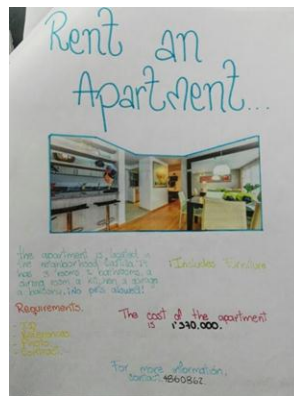 Rent an
Apartment...
the apartment is located in
the neighborhood It
has 3 rooms 2 bathrooms, a
dining room, a kitchen, a garage
a balcony. No pets allowed!
*Includes furniture
Requirements.
- ID
- References
- Photo
- Contract
The cost of the apartment
is 1'370.000.
For more information,
contact: 4860862.